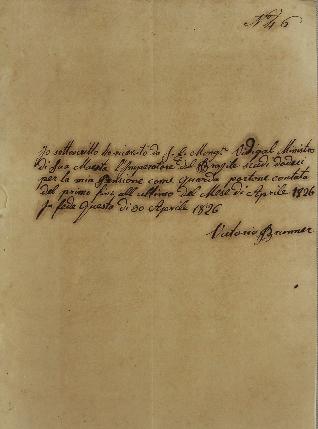 No 46
Io sottoscritto ho ricevuto da S. E. Monsr Vidigal Ministro
di Sua Maestà l'Imperatore del Brasile scudi dodici
per la mia Pensione come Guarda portone contata
del primo fino all ultimo del Mese di Aprile 1826
In fede Questo di 30 Aprile 1826
Vittorio Brunner